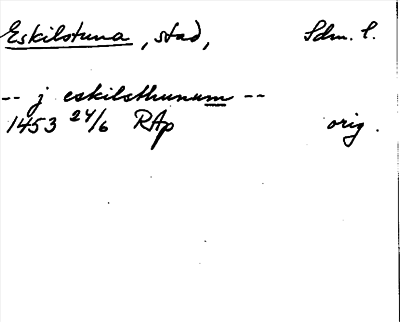 Eskilstuna, stad, Sdm. l.
-- j eskilsthunum --
1453 24/6 RAp orig.